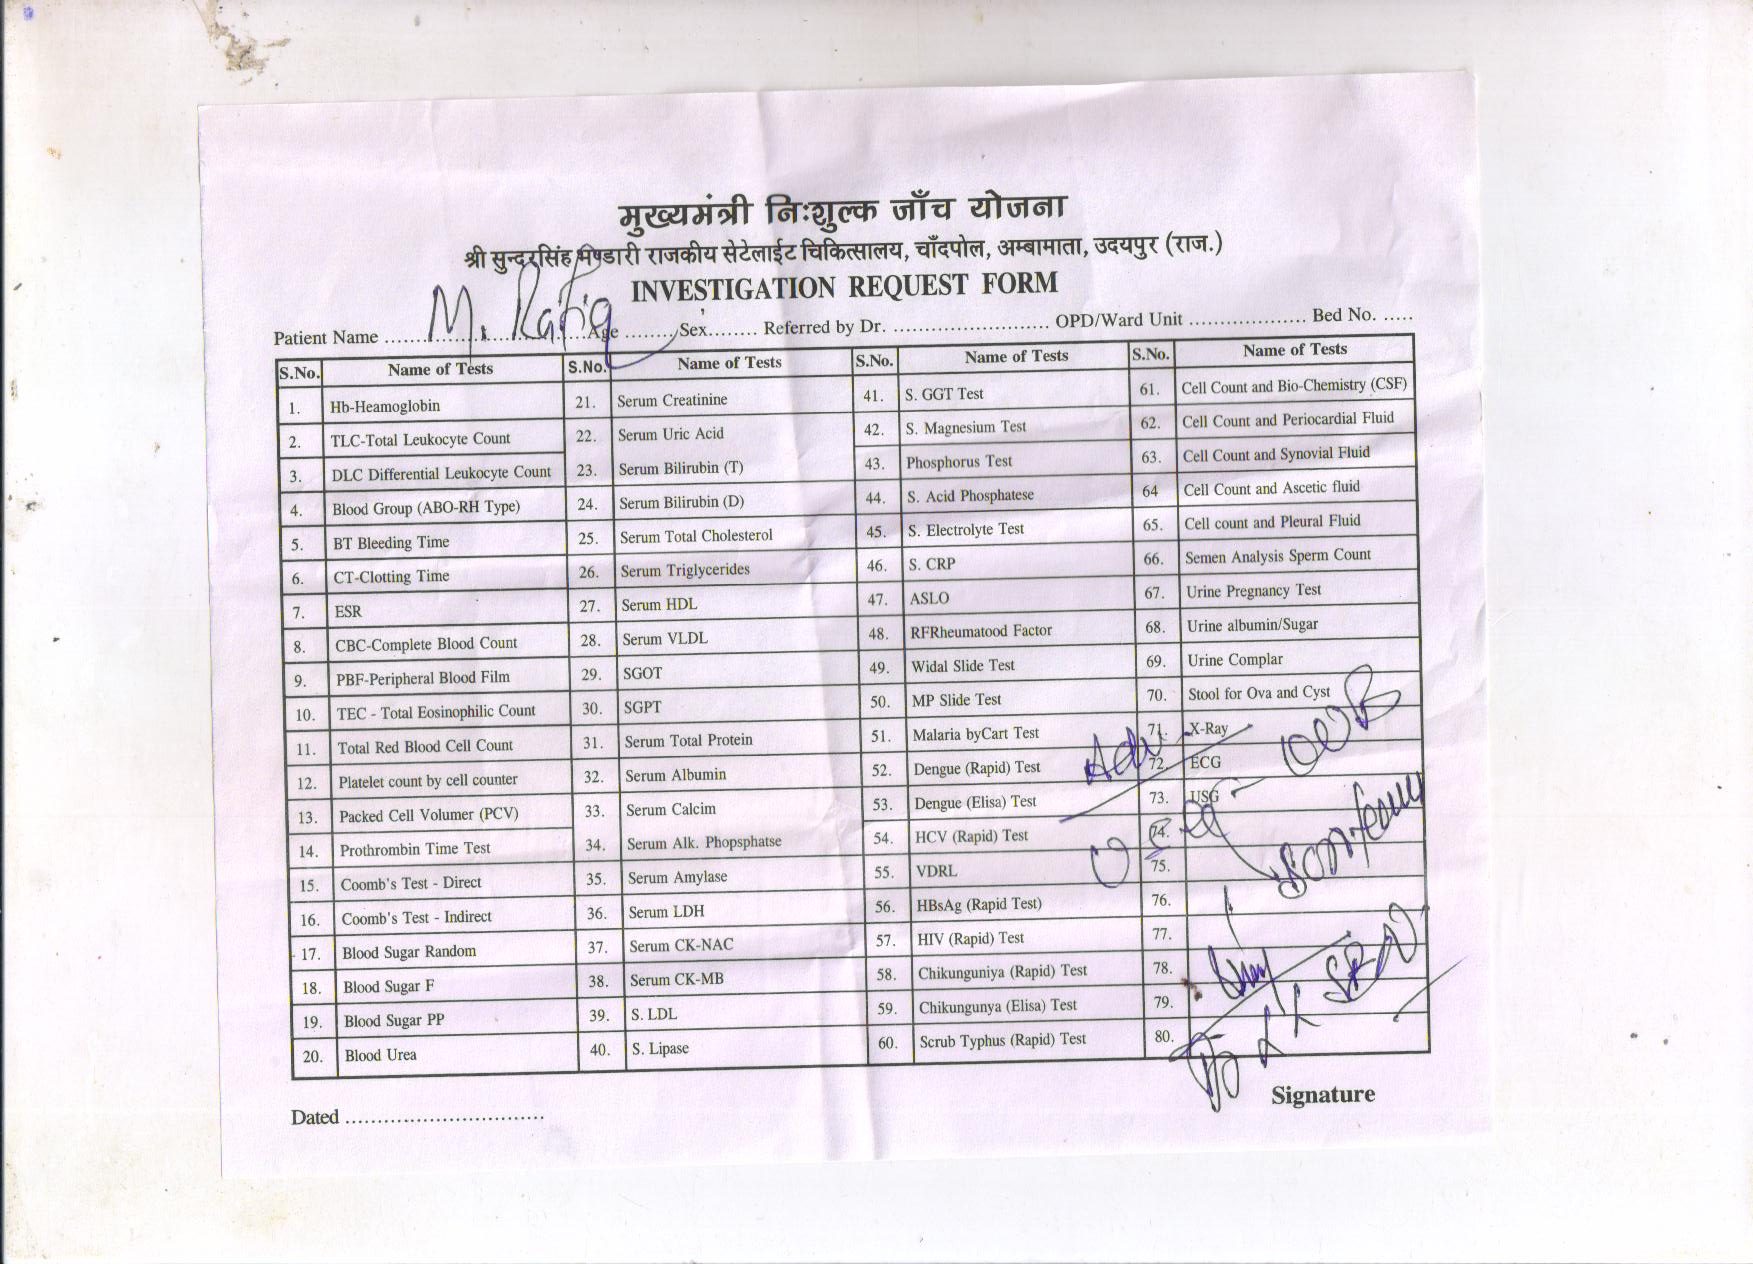 मुख्यमंत्री निःशुल्क जाँच योजना
श्री सुन्दरसिंह भण्डारी राजकीय सेटेलाईट चिकित्सालय, चाँदपोल, अम्बामाता, उदयपुर (राज.)
INVESTIGATION REQUEST FORM
Patient Name M. Rafiq Age ........ Sex ........ Referred by Dr. ............................ OPD/Ward Unit .................... Bed No. .....
S.No. Name of Tests S.No. Name of Tests S.No. Name of Tests S.No. Name of Tests
1. Hb-Heamoglobin 21. Serum Creatinine 41. S. GGT Test 61. Cell Count and Bio-Chemistry (CSF)
2. TLC-Total Leukocyte Count 22. Serum Uric Acid 42. S. Magnesium Test 62. Cell Count and Periocardial Fluid
3. DLC Differential Leukocyte Count 23. Serum Bilirubin (T) 43. Phosphorus Test 63. Cell Count and Synovial Fluid
4. Blood Group (ABO-RH Type) 24. Serum Bilirubin (D) 44. S. Acid Phosphatese 64 Cell Count and Ascetic fluid
5. BT Bleeding Time 25. Serum Total Cholesterol 45. S. Electrolyte Test 65. Cell count and Pleural Fluid
6. CT-Clotting Time 26. Serum Triglycerides 46. S. CRP 66. Semen Analysis Sperm Count
7. ESR 27. Serum HDL 47. ASLO 67. Urine Pregnancy Test
8. CBC-Complete Blood Count 28. Serum VLDL 48. RFRheumatood Factor 68. Urine albumin/Sugar
9. PBF-Peripheral Blood Film 29. SGOT 49. Widal Slide Test 69. Urine Complar
10. TEC - Total Eosinophilic Count 30. SGPT 50. MP Slide Test 70. Stool for Ova and Cyst
11. Total Red Blood Cell Count 31. Serum Total Protein 51. Malaria byCart Test 71. X-Ray
12. Platelet count by cell counter 32. Serum Albumin 52. Dengue (Rapid) Test 72. ECG
13. Packed Cell Volumer (PCV) 33. Serum Calcim 53. Dengue (Elisa) Test 73. USG
14. Prothrombin Time Test 34. Serum Alk. Phopsphatse 54. HCV (Rapid) Test 74.
15. Coomb's Test - Direct 35. Serum Amylase 55. VDRL 75.
16. Coomb's Test - Indirect 36. Serum LDH 56. HBsAg (Rapid Test) 76.
17. Blood Sugar Random 37. Serum CK-NAC 57. HIV (Rapid) Test 77.
18. Blood Sugar F 38. Serum CK-MB 58. Chikunguniya (Rapid) Test 78.
19. Blood Sugar PP 39. S. LDL 59. Chikungunya (Elisa) Test 79.
20. Blood Urea 40. S. Lipase 60. Scrub Typhus (Rapid) Test 80.
Adv
Dated ...............................
Signature